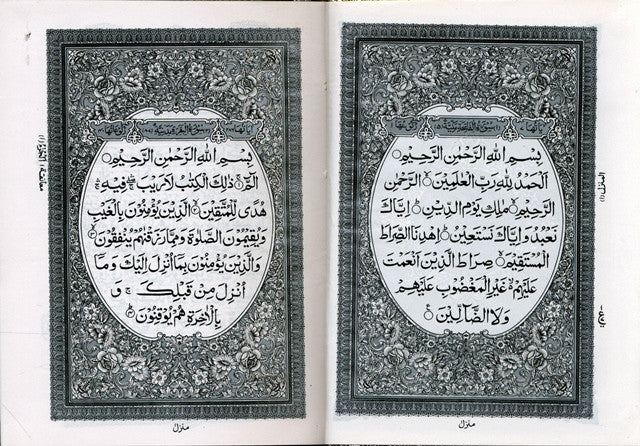 سُوْرَةُ الْفَاتِحَةِ مَكِّيَّةٌ
بِسْمِ اللّٰهِ الرَّحْمٰنِ الرَّحِيْمِ ○
اَلْحَمْدُ لِلّٰهِ رَبِّ الْعٰلَمِيْنَ ○ الرَّحْمٰنِ
الرَّحِيْمِ ○ مٰلِكِ يَوْمِ الدِّيْنِ ○ اِيَّاكَ
نَعْبُدُ وَاِيَّاكَ نَسْتَعِيْنُ ○ اِهْدِنَا الصِّرَاطَ
الْمُسْتَقِيْمَ ○ صِرَاطَ الَّذِيْنَ اَنْعَمْتَ
عَلَيْهِمْ ○ غَيْرِ الْمَغْضُوْبِ عَلَيْهِمْ
وَلَا الضَّآلِّيْنَ ○
منزل
المنزل (١)
سُوْرَةُ الْبَقَرَةِ مَدَنِيَّةٌ
بِسْمِ اللّٰهِ الرَّحْمٰنِ الرَّحِيْمِ ○
الٓمّٓ ○ ذٰلِكَ الْكِتٰبُ لَا رَيْبَ فِيْهِ
هُدًى لِّلْمُتَّقِيْنَ ○ الَّذِيْنَ يُؤْمِنُوْنَ بِالْغَيْبِ
وَيُقِيْمُوْنَ الصَّلٰوةَ وَمِمَّا رَزَقْنٰهُمْ يُنْفِقُوْنَ ○
وَالَّذِيْنَ يُؤْمِنُوْنَ بِمَآ اُنْزِلَ اِلَيْكَ وَمَآ
اُنْزِلَ مِنْ قَبْلِكَ ج وَ
بِالْاٰخِرَةِ هُمْ يُوْقِنُوْنَ ○
منزل